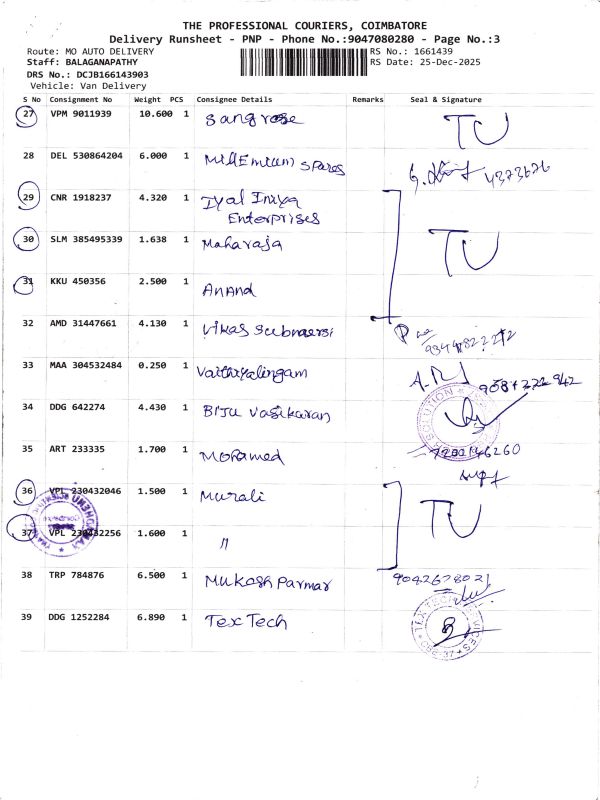 THE PROFESSIONAL COURIERS, COIMBATORE
Delivery Runsheet - PNP - Phone No.:9047080280 - Page No.:3
Route: MO AUTO DELIVERY RS No.: 1661439
Staff: BALAGANAPATHY RS Date: 25-Dec-2025
DRS No.: DCJB166143903
Vehicle: Van Delivery
S No Consignment No Weight PCS Consignee Details Remarks Seal & Signature
27 VPM 9011939 10.600 1 Sangrose TU
28 DEL 530864204 6.000 1 Millenium spares
29 CNR 1918237 4.320 1 Iyal Iniya
Enterprises
30 SLM 385495339 1.638 1 Maharaja TU
31 KKU 450356 2.500 1 Anand
32 AMD 31447661 4.130 1 Vikas
33 MAA 304532484 0.250 1 Vaithiyalingam
34 DDG 642274 4.430 1 Biju Vasikaran
35 ART 233335 1.700 1 Mohamed
36 VPL 230432046 1.500 1 Murali TU
37 VPL 230432256 1.600 1 "
38 TRP 784876 6.500 1 Mukesh Parmar 9042678021
39 DDG 1252284 6.890 1 Tex Tech